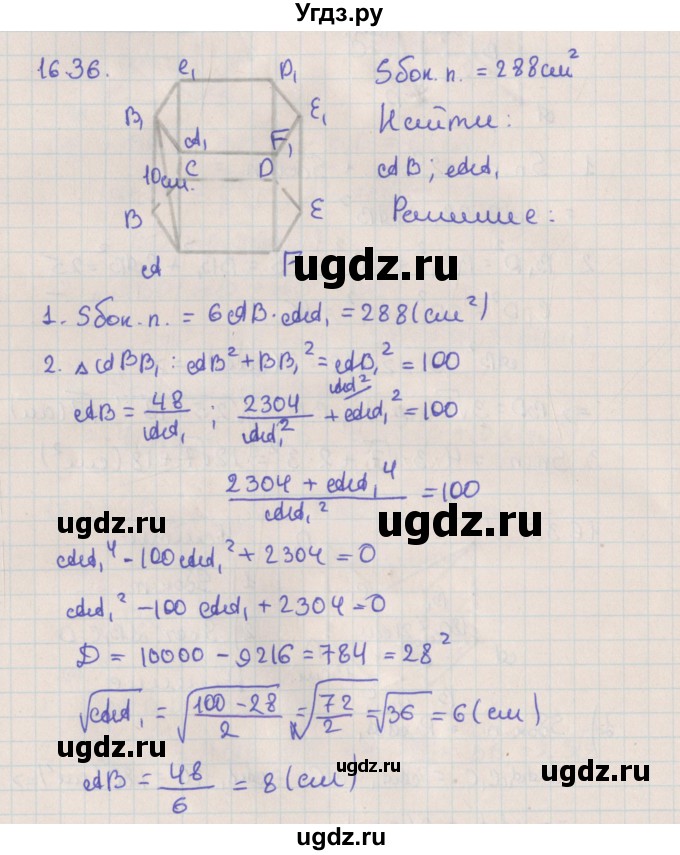 Угдз.ру
16.36.
C₁ D₁
B₁ E₁
A₁ F₁
10см. C D
B E
A F
Sбок.п. = 288см²
Найти:
AB; AA₁
Решение:
ugdz.ru
1. Sбок.п. = 6AB·AA₁ = 288(см²)
2. △ABB₁: AB² + BB₁² = AB₁² = 100
AB = 48/AA₁ ; 2304/AA₁² + AA₁² = 100
AA₁²
(2304 + AA₁⁴)/AA₁² = 100
ugdz.ru ugdz.ru
AA₁⁴ - 100AA₁² + 2304 = 0
AA₁² - 100AA₁ + 2304 = 0
D = 10000 - 9216 = 784 = 28²
√AA₁ = √((100-28)/2) = √(72/2) = √36 = 6(см)
ugdz.ru ugdz.ru
AB = 48/6 = 8(см)
ugdz.ru
ugdz.ru